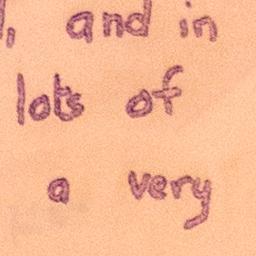 , and in
lots of
a very